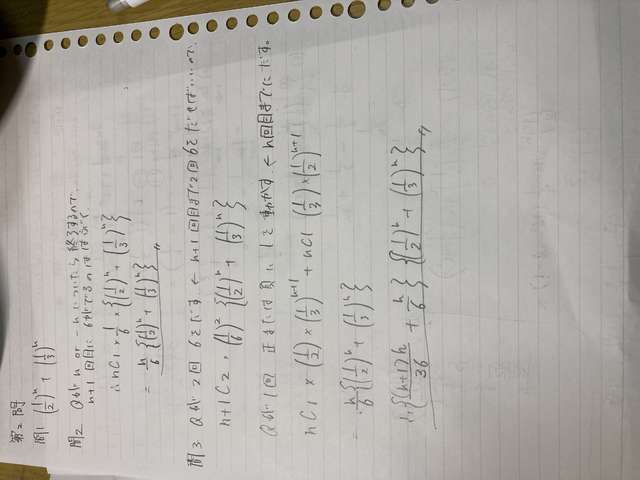 第2問
問1 (1/2)^n + (1/3)^n
問2 Qが n or -n についたら終了するので
n+1回目に6がでるのははぶく
∴ nC1 × 1/6 × {(1/2)^n + (1/3)^n}
= n/6 {(1/2)^n + (1/3)^n} 〃
問3 Qが2回6をだす ← n+1回目まで2回6をだせばいいので、
n+1C2 ・ (1/6)^2 {(1/2)^n + (1/3)^n}
Qが1回 正または負に1を動かす ← n回目までにだす。
nC1 × (1/2) × (1/3)^{n+1} + nC1 (1/3) × (1/2)^{n+1}
= n/6 {(1/2)^n + (1/3)^n}
∴ {(n+1)n/36 + n/6} {(1/2)^n + (1/3)^n} 〃